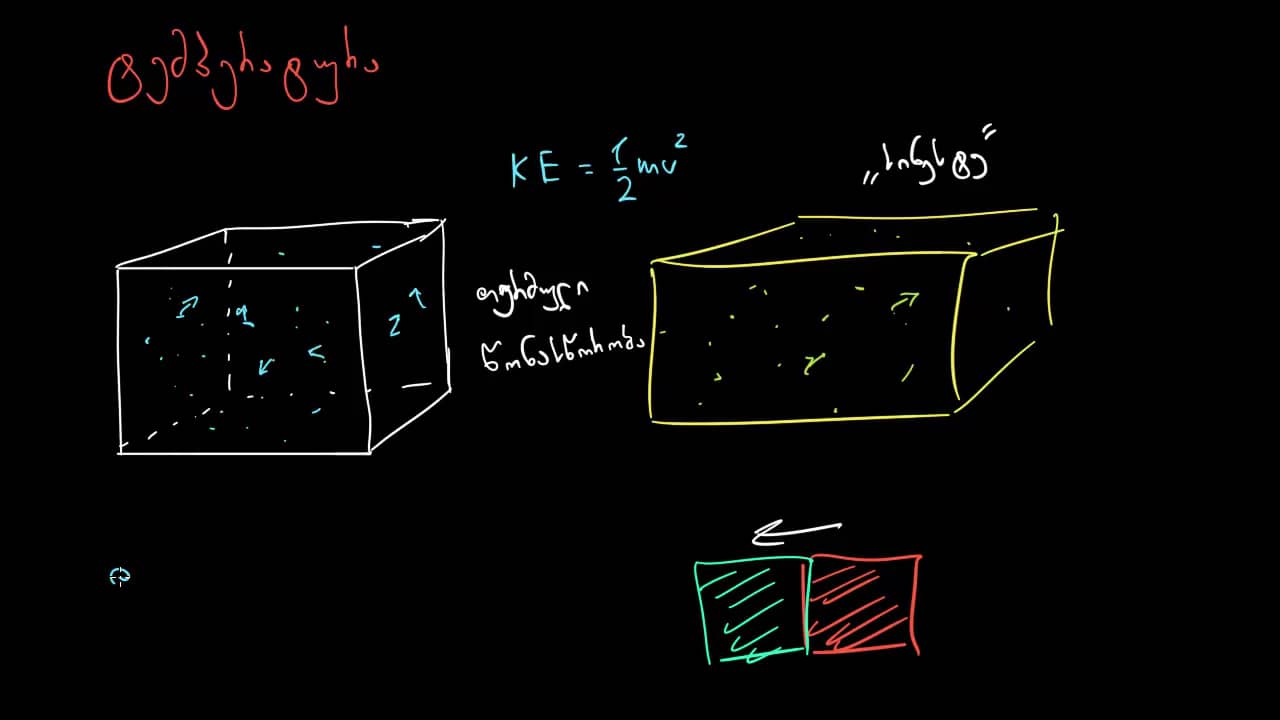 ტემპერატურა
KE = 1/2 mv²
„სინესტე“
თერმული
წონასწორობა